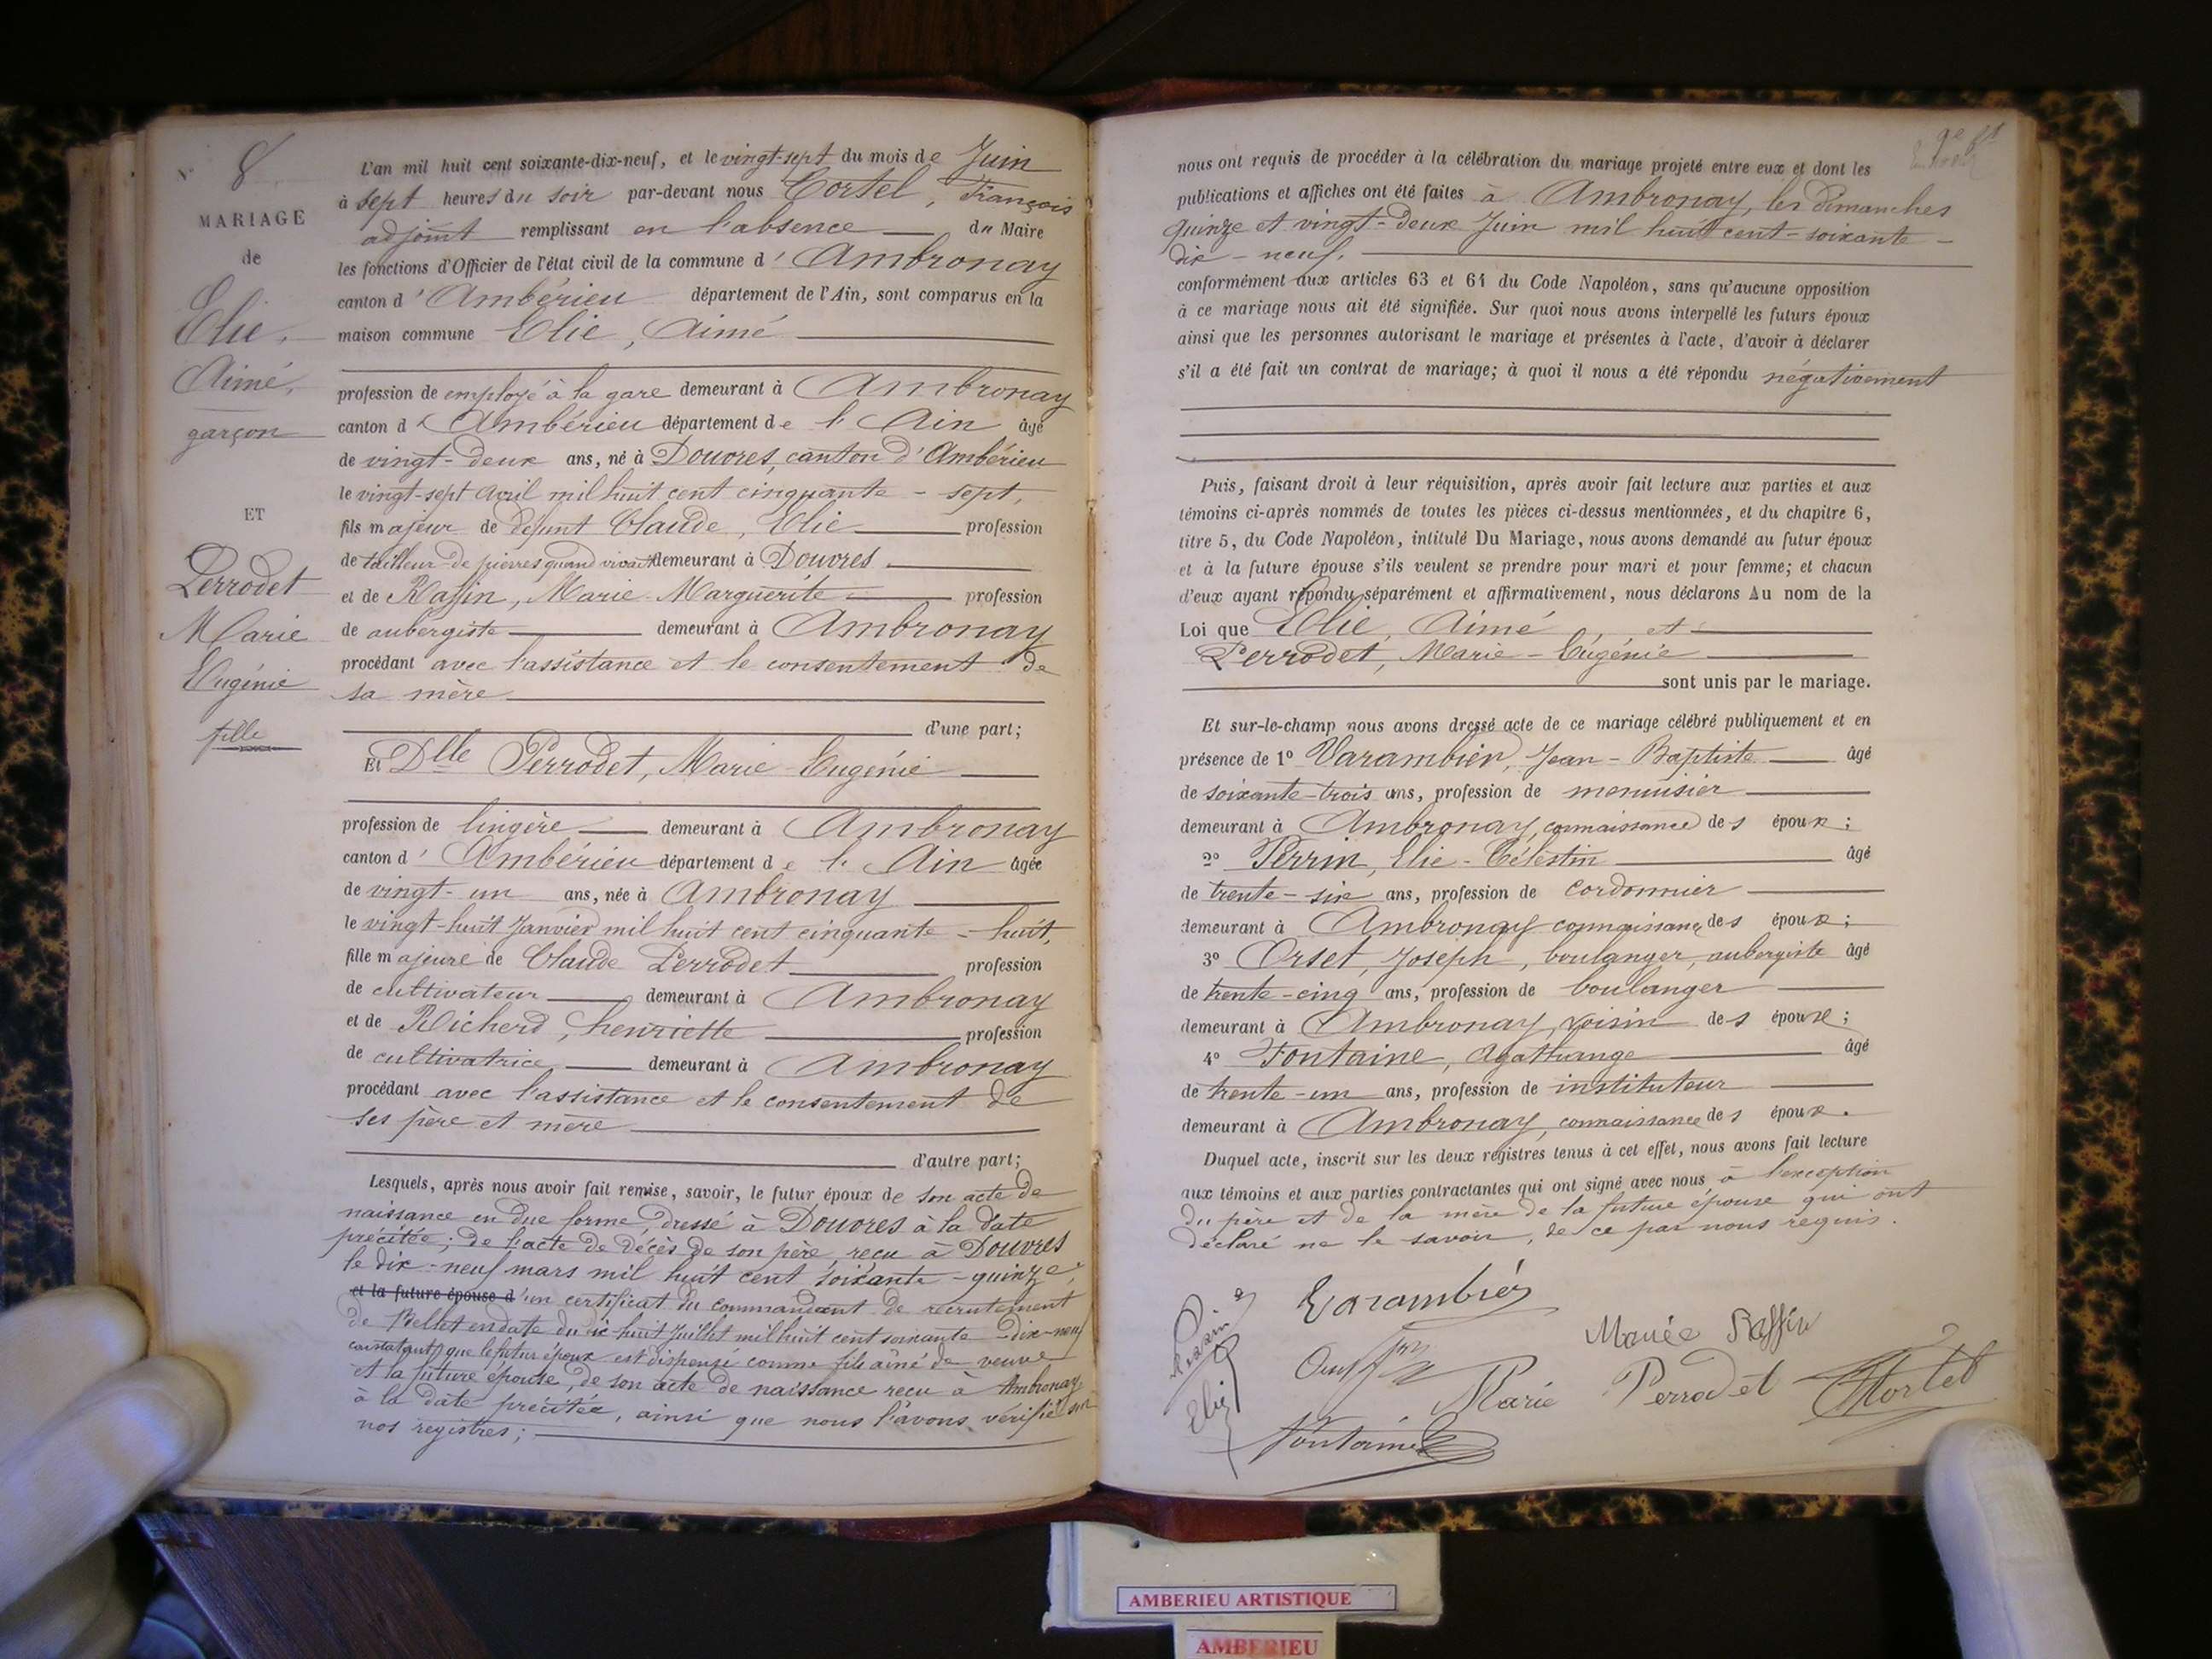 N° 8
MARIAGE
de
Elie,
Aimé,
garçon
ET
Perrodet
Marie
Eugénie
fille
L'an mil huit cent soixante-dix-neuf, et le vingt-sept du mois de Juin
à sept heures du soir par-devant nous Cortel, François
adjoint remplissant en l'absence du Maire
les fonctions d'Officier de l'état civil de la commune d'Ambronay
canton d'Ambérieu département de l'Ain, sont comparus en la
maison commune Elie, Aimé
profession de employé à la gare demeurant à Ambronay
canton d'Ambérieu département de l'Ain âgé
de vingt-deux ans, né à Douvres, canton d'Ambérieu
le vingt-sept avril mil huit cent cinquante-sept,
fils majeur de défunt Claude, Elie profession
de tailleur de pierres quand vivait demeurant à Douvres
et de Raffin, Marie-Marguerite profession
de aubergiste demeurant à Ambronay
procédant avec l'assistance et le consentement de
sa mère
d'une part;
Et Dlle Perrodet, Marie-Eugénie
profession de lingère demeurant à Ambronay
canton d'Ambérieu département de l'Ain âgée
de vingt-un ans, née à Ambronay
le vingt-huit Janvier mil huit cent cinquante-huit,
fille majeure de Claude Perrodet profession
de cultivateur demeurant à Ambronay
et de Richerd, henriette profession
de cultivatrice demeurant à Ambronay
procédant avec l'assistance et le consentement de
ses père et mère
d'autre part;
Lesquels, après nous avoir fait remise, savoir, le futur époux de son acte de
naissance en due forme, dressé à Douvres à la date
précitée; de l'acte de décès de son père, reçu à Douvres
le dix-neuf mars mil huit cent soixante-quinze,
et la future épouse d'un certificat du commandant de recrutement
de Belley en date du dix huit Juillet mil huit cent soixante-dix-neuf
constatant que le futur époux est dispensé comme fils aîné de veuve
et la future épouse, de son acte de naissance reçu à Ambronay
à la date précitée, ainsi que nous l'avons vérifié sur
nos registres;
nous ont requis de procéder à la célébration du mariage projeté entre eux et dont les
publications et affiches ont été faites à Ambronay, les dimanches
quinze et vingt-deux Juin mil huit cent-soixante-
dix-neuf,
conformément aux articles 63 et 64 du Code Napoléon, sans qu'aucune opposition
à ce mariage nous ait été signifiée. Sur quoi nous avons interpellé les futurs époux
ainsi que les personnes autorisant le mariage et présentes à l'acte, d'avoir à déclarer
s'il a été fait un contrat de mariage; à quoi il nous a été répondu négativement
Puis, faisant droit à leur réquisition, après avoir fait lecture aux parties et aux
témoins ci-après nommés de toutes les pièces ci-dessus mentionnées, et du chapitre 6,
titre 5, du Code Napoléon, intitulé Du Mariage, nous avons demandé au futur époux
et à la future épouse s'ils veulent se prendre pour mari et pour femme; et chacun
d'eux ayant répondu séparément et affirmativement, nous déclarons Au nom de la
Loi que Elie, Aimé, et
Perrodet, Marie-Eugénie
sont unis par le mariage.
Et sur-le-champ nous avons dressé acte de ce mariage célébré publiquement et en
présence de 1° Varambien, Jean-Baptiste âgé
de soixante-trois ans, profession de menuisier
demeurant à Ambronay, connaissance des époux;
2° Perrin, Elie-Célestin âgé
de trente-six ans, profession de cordonnier
demeurant à Ambronay connaissance des époux;
3° Orset, Joseph, boulanger, aubergiste âgé
de trente-cinq ans, profession de boulanger
demeurant à Ambronay, voisin des époux;
4° Fontaine, Agathange âgé
de trente-un ans, profession de instituteur
demeurant à Ambronay, connaissance des époux.
Duquel acte, inscrit sur les deux registres tenus à cet effet, nous avons fait lecture
aux témoins et aux parties contractantes qui ont signé avec nous, à l'exception
du père et de la mère de la future épouse qui ont
déclaré ne le savoir, de ce par nous requis.
Varambien
Marie Raffin
Elie
Marie Perrodet
Cortel
Fontaine
AMBERIEU ARTISTIQUE
AMBERIEU